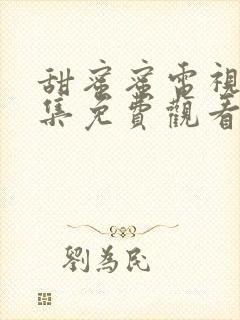 甜蜜蜜電視
集免費觀看
劉為民